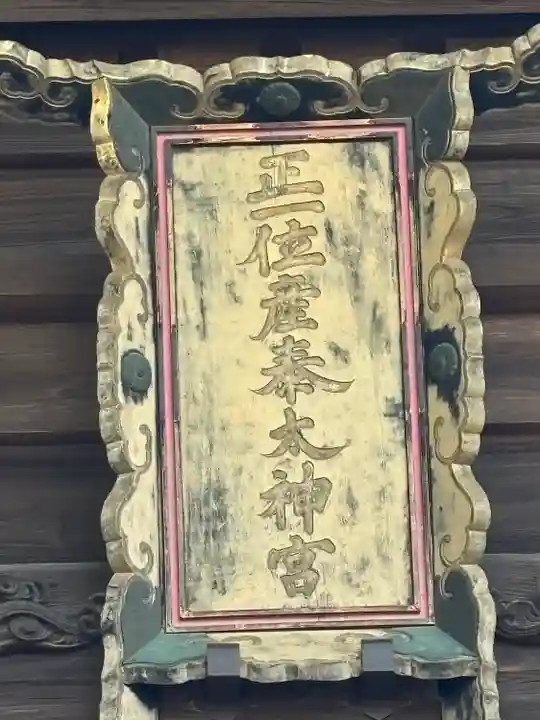 正一位産泰大神宮